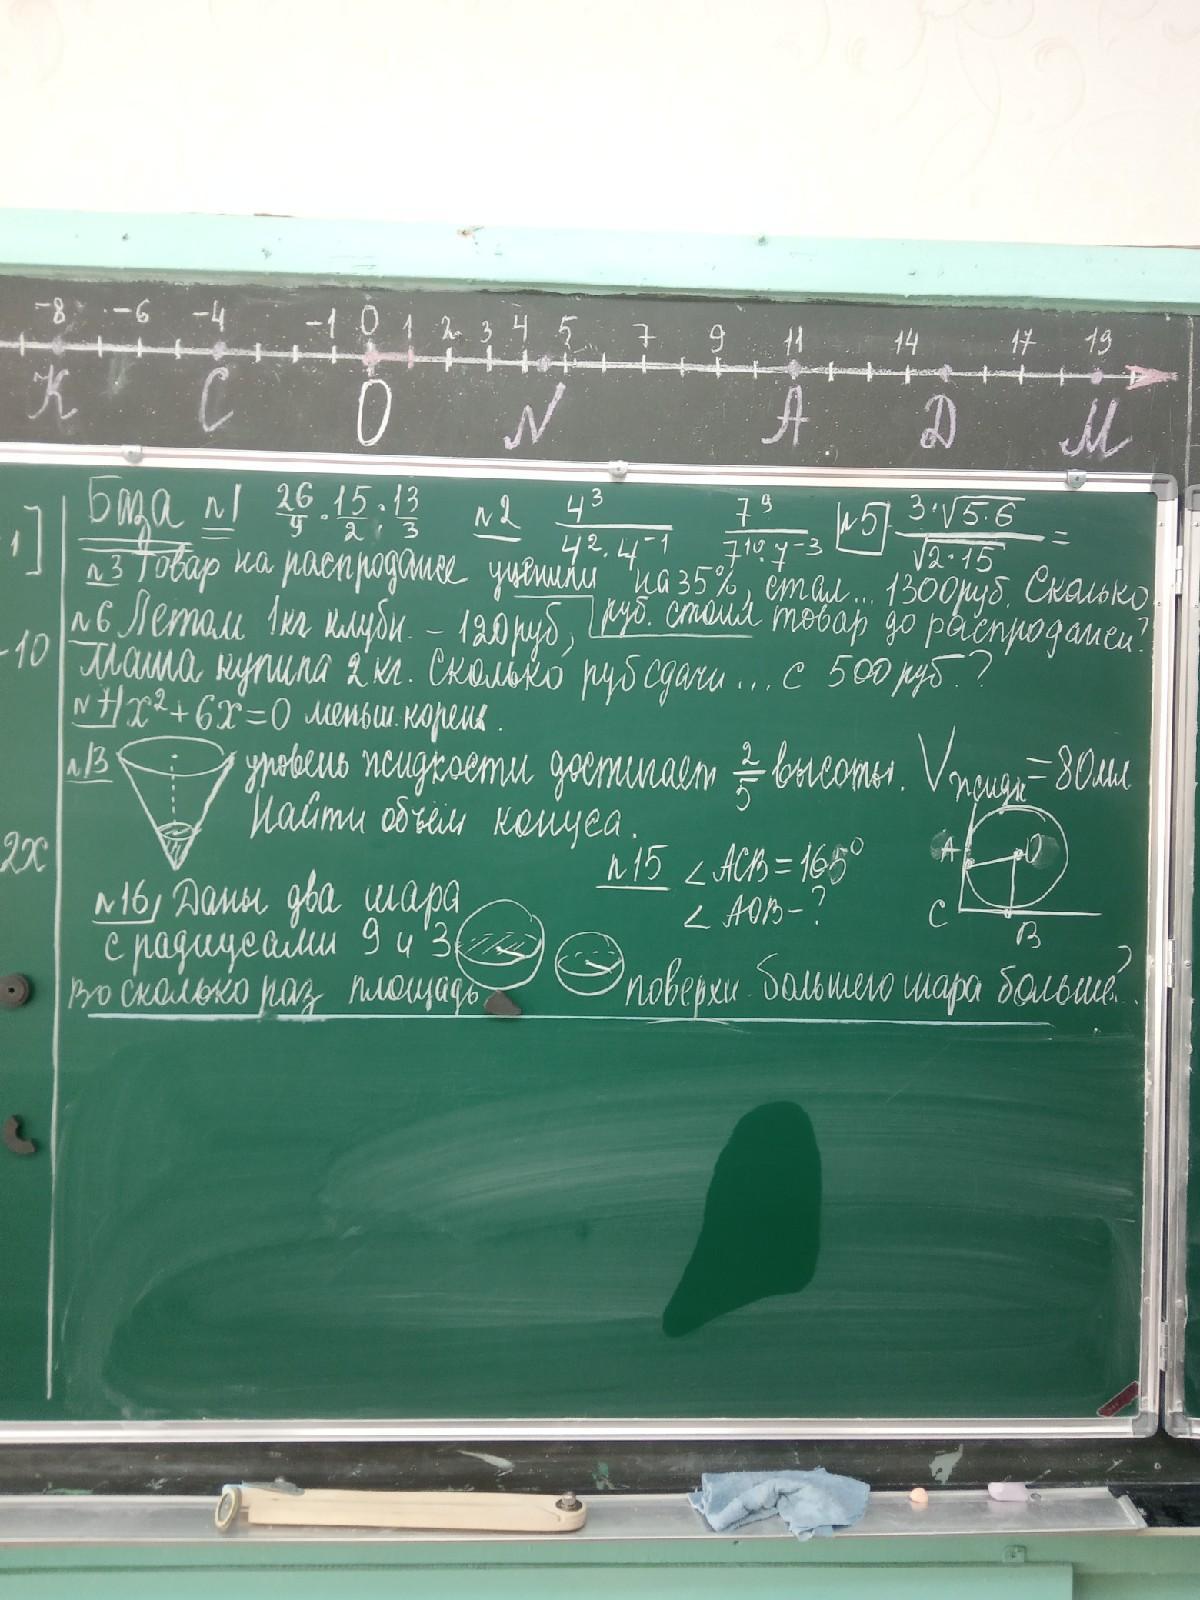 -8 -6 -4 -1 0 1 2 3 4 5 7 9 11 14 17 19
K C O N A D M
База №1 26/9 · 15/2 : 13/3 №2 4³/(4² · 4⁻¹) 7⁹/(7¹⁰ · 7⁻³) №5 3·√5·6/√2·15 =
№3 Товар на распродаже уценили на 35%, стал... 1300руб. Сколько
руб. стоил товар до распродажи?
№6 Летом 1кг клубн. – 120руб,
Маша купила 2 кг. Сколько руб сдачи... с 500 руб.?
№7 x² + 6x = 0 меньш. корень.
№13 уровень жидкости достигает 2/5 высоты. Vжидк = 80мл
Найти объём конуса.
№15 ∠ACB = 165°
∠AOB – ?
A O C B
№16, Даны два шара
с радиусами 9 и 3
Во сколько раз площадь поверхн. большего шара больше...?
1]
-10
2x